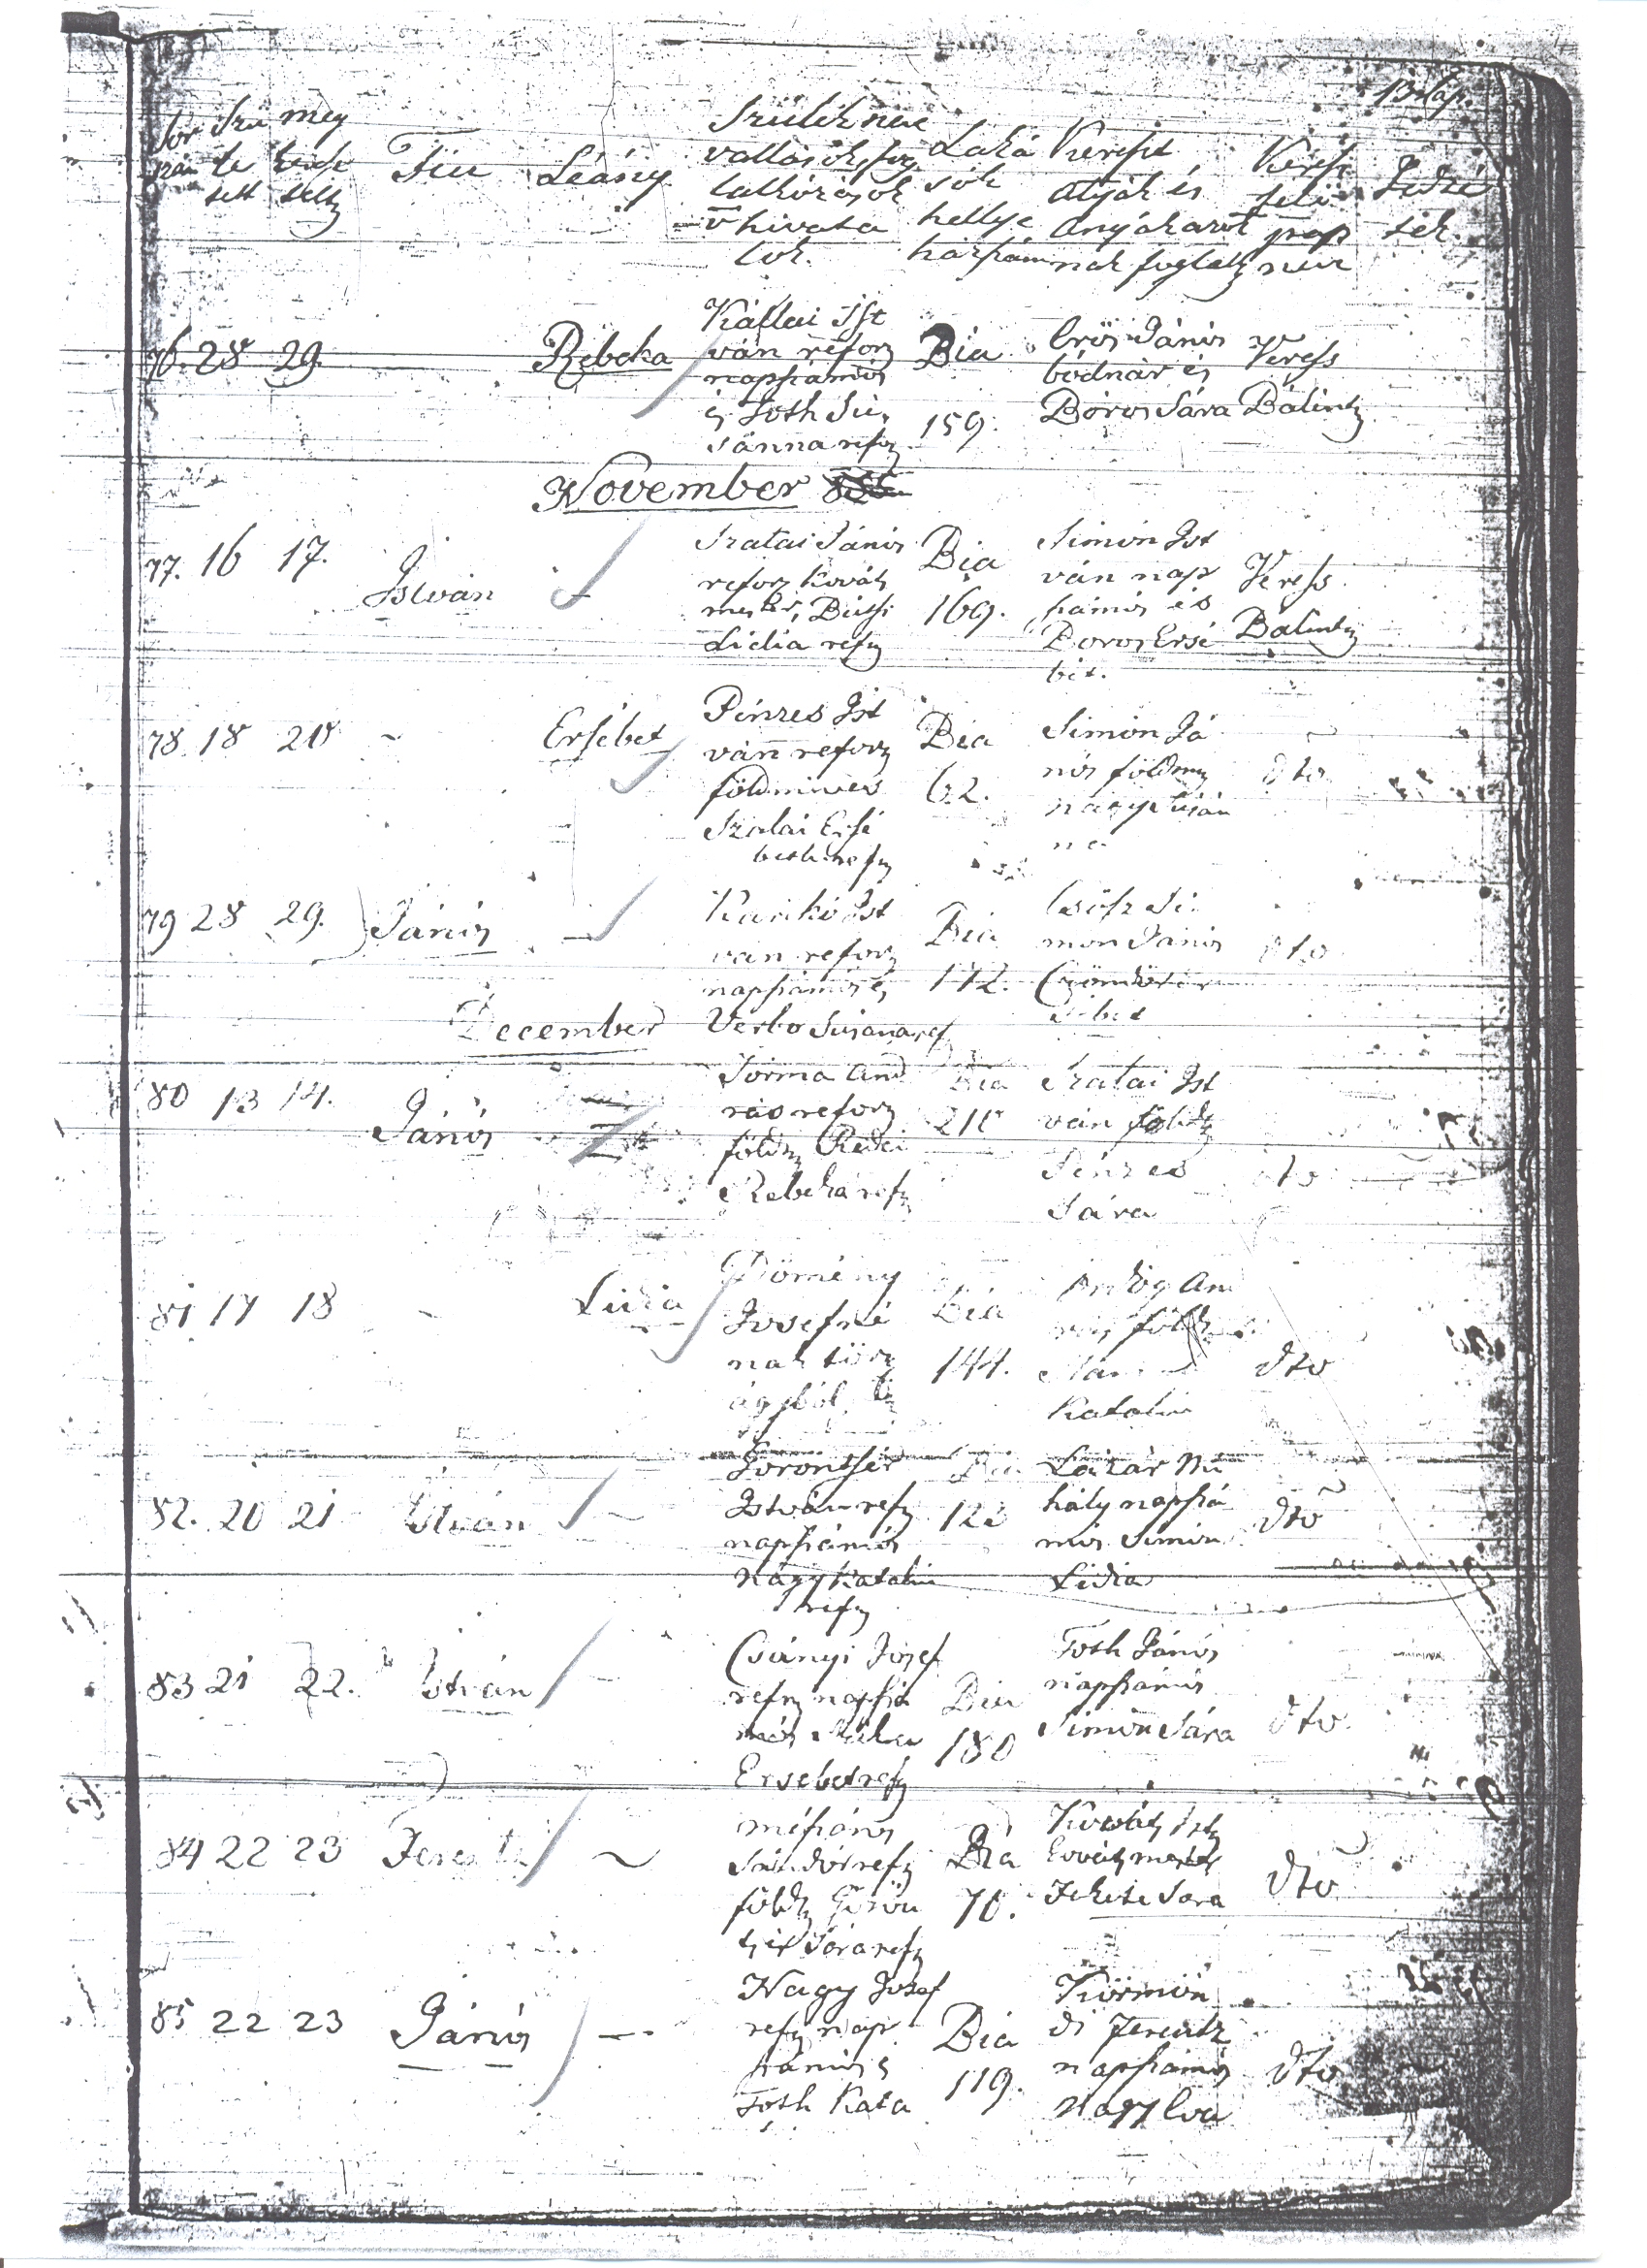 13 lap.
Sor Szü meg
szám le keresz
tett telt
Fiu Leány
Szülék neve
vallások, fog
lalkozások
v hivata
lok.
Laká
sok
hellye
házszám
Kereszt
atyák és
anyáknak
nak foglalk
Keresz
telő
pap
neve
Jedzé
sek.
76. 28 29.
Rebeka
Kállai Ist
ván reform
napszámos
és Toth Su
sánna ref
Bia
159.
Erős János
bodnár és
Boros Sára
Veress
Bálint
November
77. 16 17.
István
Szalai János
reform kováts
mester,
Lidia ref
Bia
169.
Simon Ist
ván nap
számos és
Boros Ersé
bet.
Veress
Bálint
78. 18 20
Ersébet
Pénzes Ist
ván reform
földmives
Szalai Ersé
beth ref
Bia
62.
Simon Já
nos földm
nagy Susán
na
dto
79 28 29.
János
Kankó Ist
ván reform
napszámos és
Verbo Susana ref
Bia
172.
Csősz Si
mon János
dto
December
80 13 14.
János
Torma And
rás reform
földm Rédei
Rebeka ref
Bia
210
Szalai Ist
ván földm
Pénzes
Sára
dto
81 17 18
Lidia
Dömény
Josefné
nak törv
ágyból
Bia
144.
Ördög And
rás földm
Katalin
dto
82. 20 21
István
Göröntsér
István ref
napszámos
Nagy Katalin
ref
Bia
123
Lázár Mi
hály napszá
mos Simon
Lidia
dto
83 21 22.
István
Csányi Josef
ref napszá
mos
Ersebet ref
Bia
180
Toth János
napszámos
Simon Sára
dto
84 22 23
Ferentz
Mészáros
Sándor ref
földm Görön
tsér Sára ref
Bia
70.
Kováts Ist
kováts mester
Fekete Sara
dto
85 22 23
János
Nagy Josef
ref nap
számos és
Toth Kata
Bia
119.
Körmön
di Ferentz
napszámos
Nagy Eva
dto